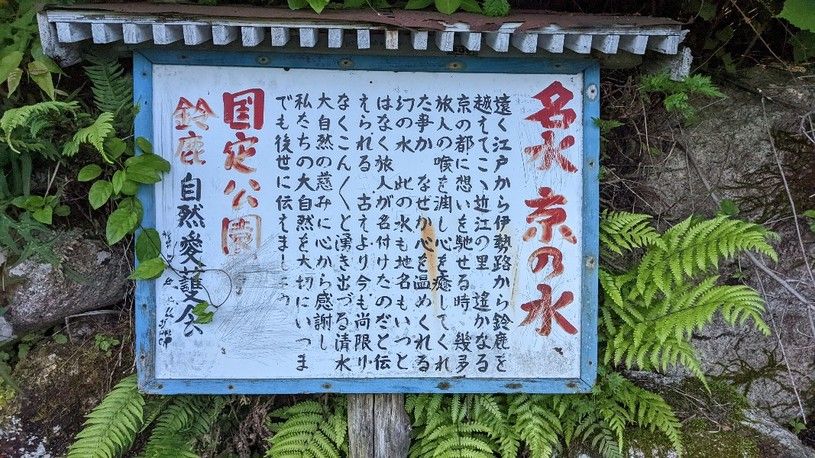 名水 京の水
遠く江戸から伊勢路から鈴鹿を
越えてこゝ近江の里 遙かなる
京の都に想いを馳せる時、幾多
旅人の喉を潤し心を癒してくれ
た事か なぜか心を温めくれる
幻の水 此の水も地名もいつと
はなく旅人が名付けたのだと伝
えられる 古えより今も尚限り
なくこんくと湧き出づる清水
大自然の慈みに心から感謝し
私たちの大自然を大切にいつま
でも後世に伝えましょう
国定公園
鈴鹿 自然愛護会